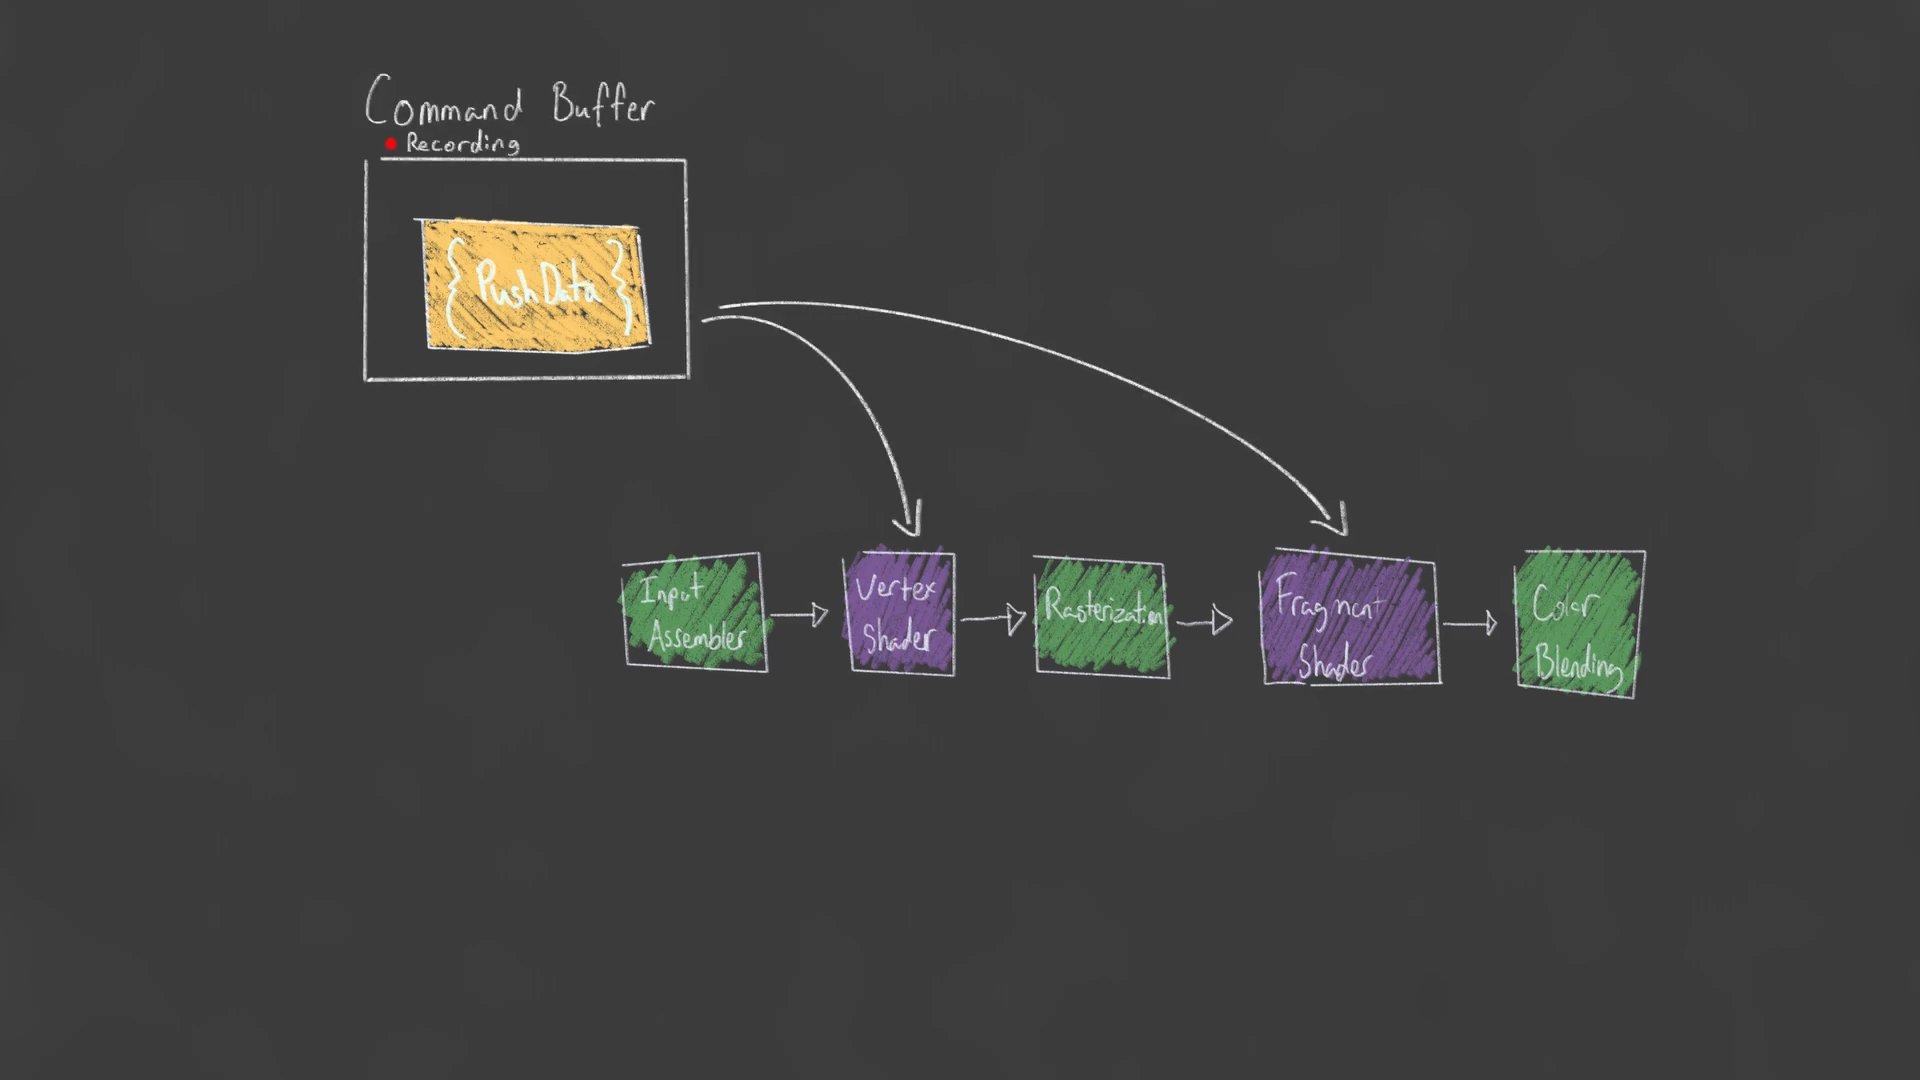 Command Buffer
Recording
{ PushData }
Input
Assembler
Vertex
Shader
Rasterization
Fragment
Shader
Color
Blending